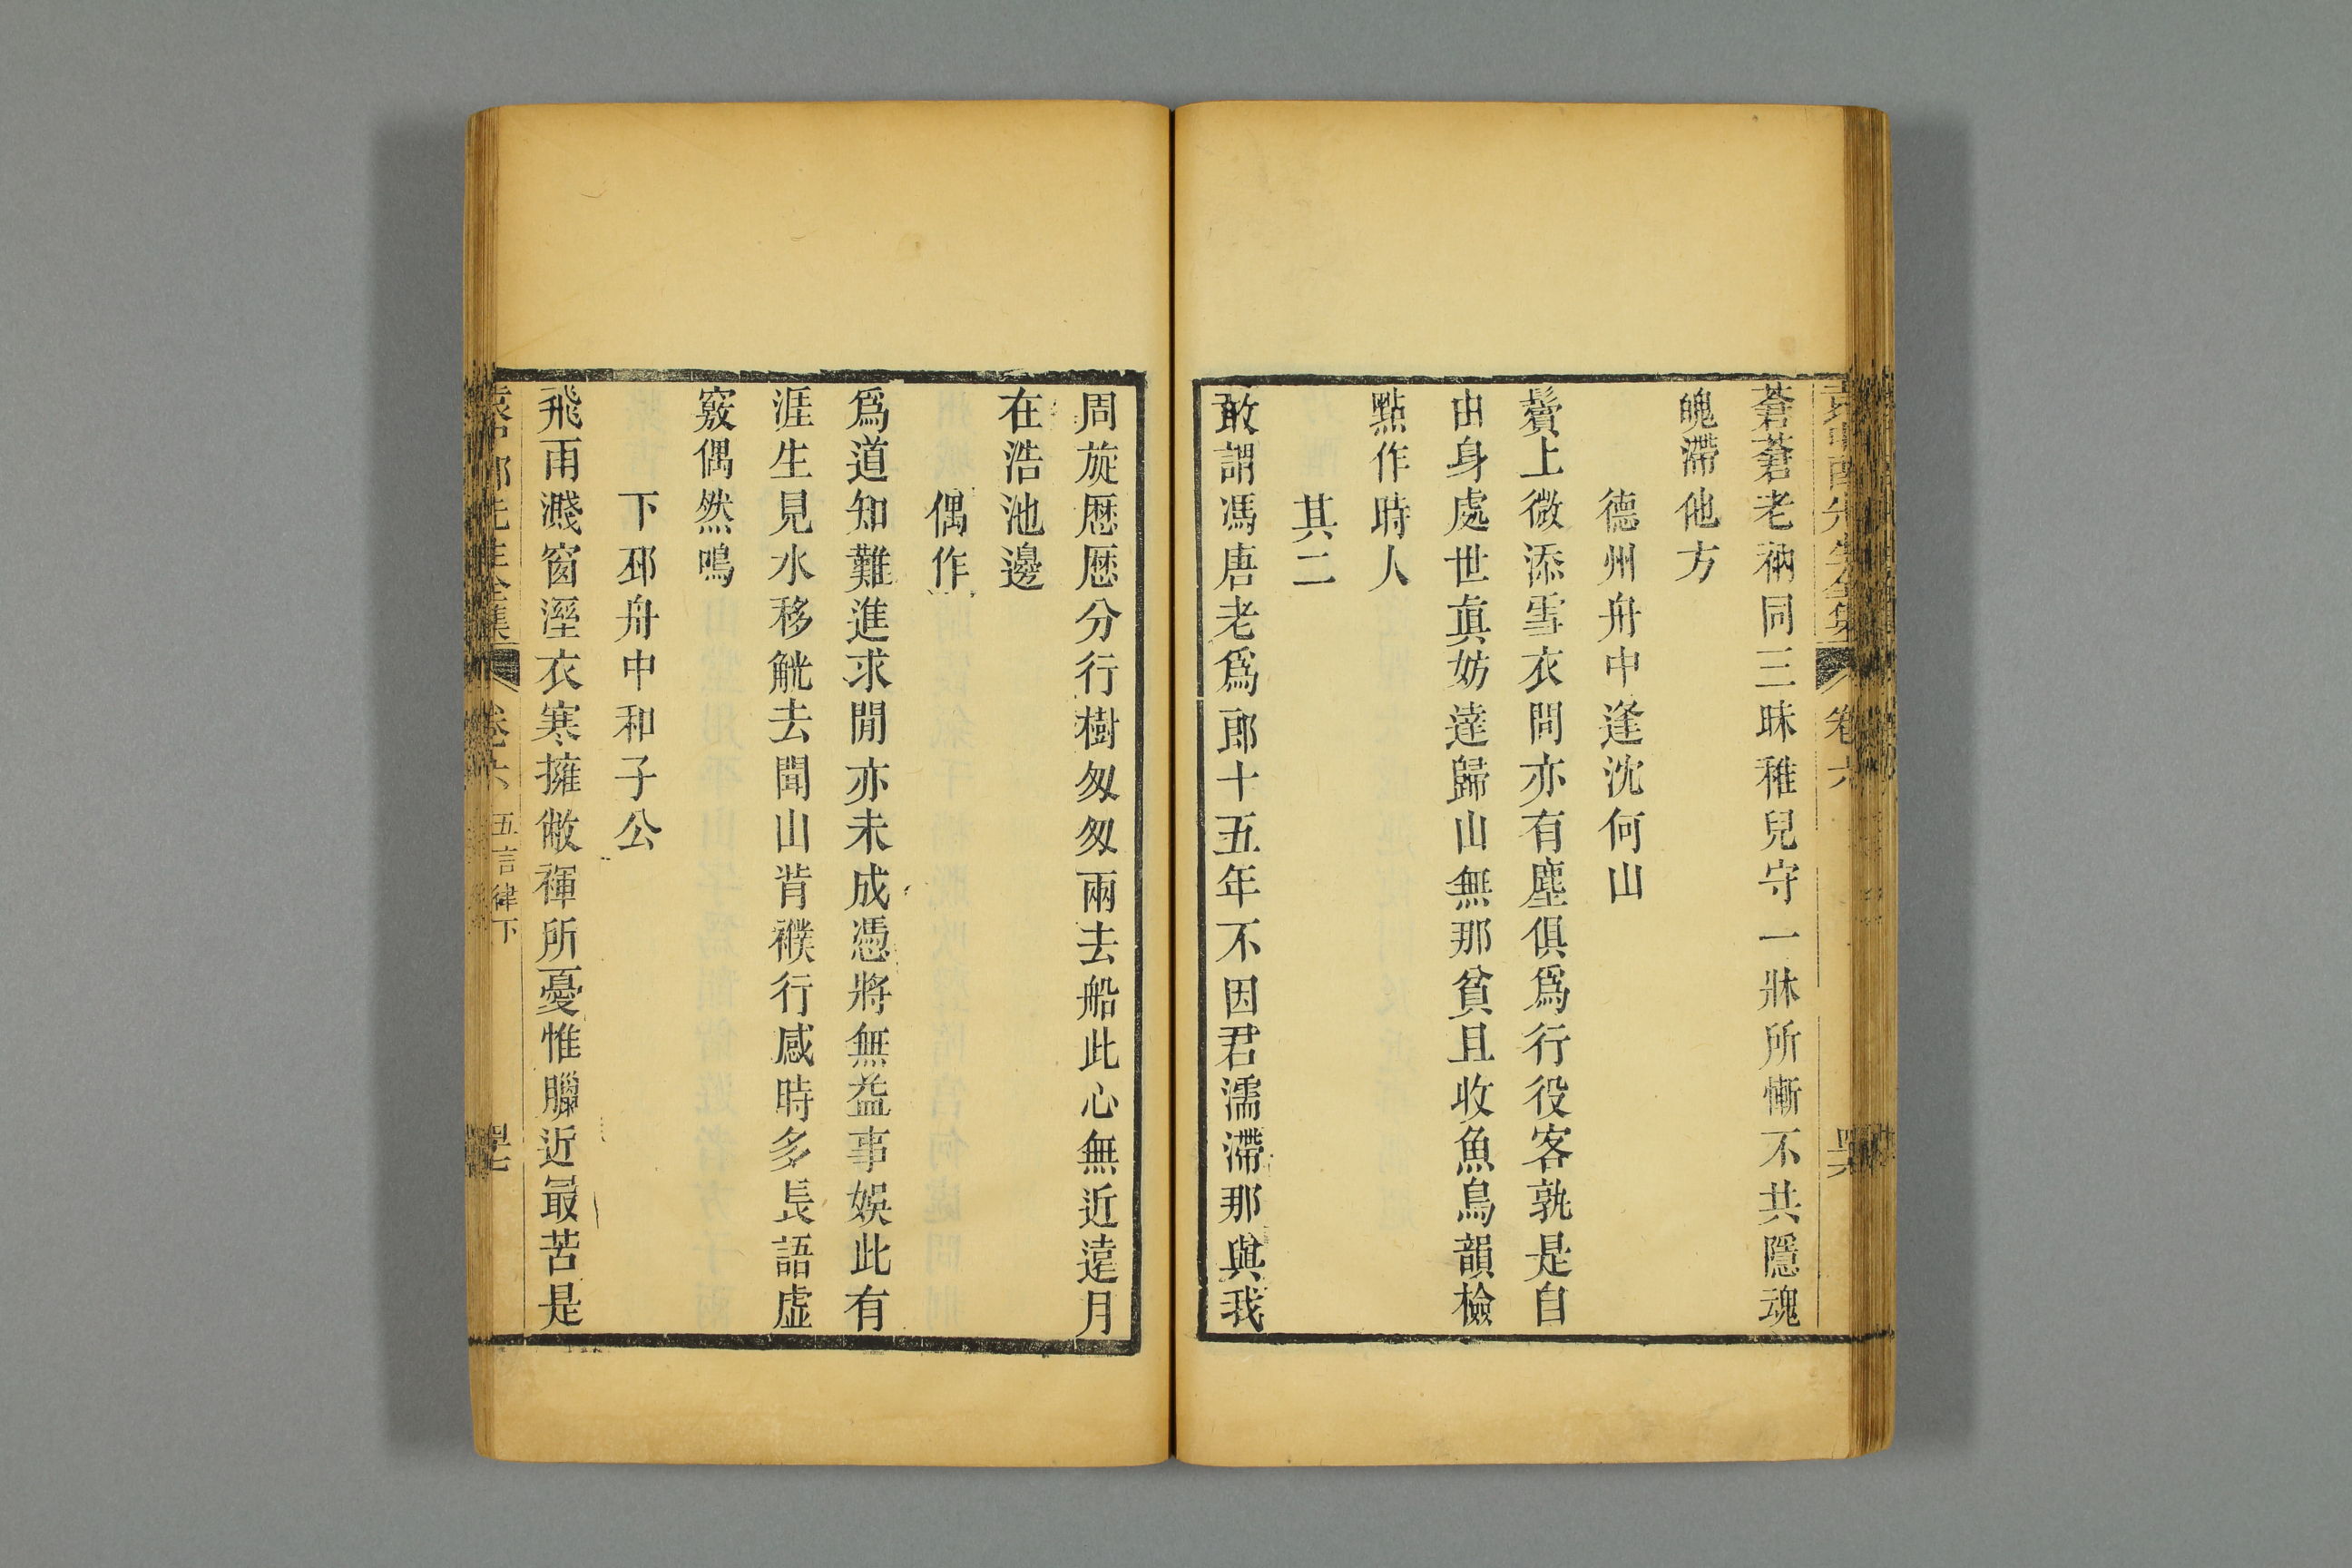 蒼蒼老衲同三昧稚兒守一牀所慚不共隱魂
魄滯他方
德州舟中逢沈何山
鬢上微添雪衣間亦有塵俱爲行役客孰是自
由身處世眞妨達歸山無那貧且收魚鳥韻檢
點作時人
其二
敢謂馮唐老爲郎十五年不因君濡滯那與我
周旋歷歷分行樹匆匆兩去船此心無近遠月
在浩池邊
偶作
爲道知難進求閒亦未成憑將無益事娛此有
涯生見水移觥去聞山肯襆行感時多長語虛
竅偶然鳴
下邳舟中和子公
飛雨濺窗溼衣寒擁敝褌所憂惟臘近最苦是
卷六 五言律下